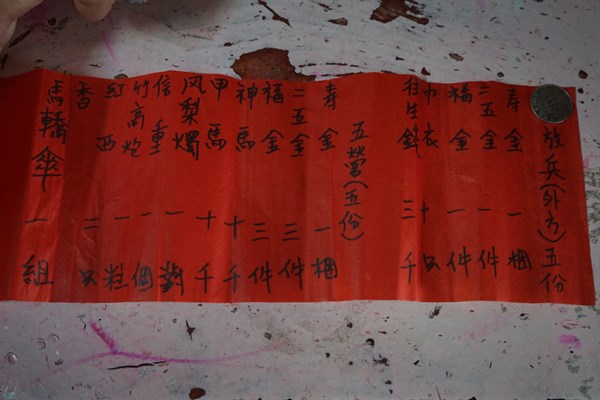 放兵(外方)五份
寿金一捆
二五金一件
福金一件
巾衣十只
往生錢三千
五營(五份)
寿金一捆
二五金三件
福金三件
神馬十千
甲馬十千
凤梨燭一對
信重一個
竹高炮一粒
紅西二只
香
馬轎傘一組